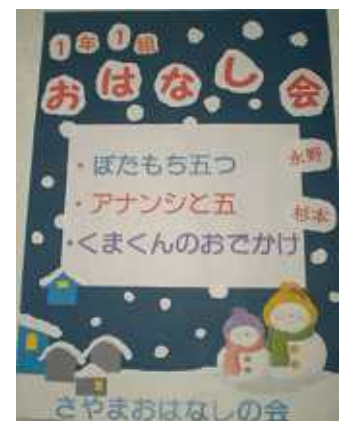 1年1組
おはなし会
・ぼたもち五つ
永野
・アナンシと五
杉本
・くまくんのおでかけ
さやまおはなしの会